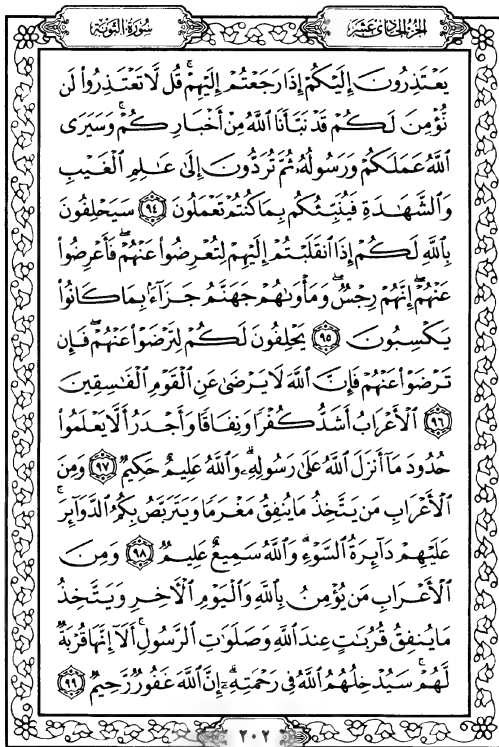 سُورَةُ التَّوْبَةِ
الجُزْءُ الحَادِي عَشَرَ
يَعْتَذِرُونَ إِلَيْكُمْ إِذَا رَجَعْتُمْ إِلَيْهِمْ ۚ قُل لَّا تَعْتَذِرُوا۟ لَن
نُّؤْمِنَ لَكُمْ قَدْ نَبَّأَنَا ٱللَّهُ مِنْ أَخْبَارِكُمْ ۚ وَسَيَرَى
ٱللَّهُ عَمَلَكُمْ وَرَسُولُهُۥ ثُمَّ تُرَدُّونَ إِلَىٰ عَـٰلِمِ ٱلْغَيْبِ
وَٱلشَّهَـٰدَةِ فَيُنَبِّئُكُم بِمَا كُنتُمْ تَعْمَلُونَ ۝٩٤ سَيَحْلِفُونَ
بِٱللَّهِ لَكُمْ إِذَا ٱنقَلَبْتُمْ إِلَيْهِمْ لِتُعْرِضُوا۟ عَنْهُمْ ۖ فَأَعْرِضُوا۟
عَنْهُمْ ۖ إِنَّهُمْ رِجْسٌ ۖ وَمَأْوَىٰهُمْ جَهَنَّمُ جَزَآءًۢ بِمَا كَانُوا۟
يَكْسِبُونَ ۝٩٥ يَحْلِفُونَ لَكُمْ لِتَرْضَوْا۟ عَنْهُمْ ۖ فَإِن
تَرْضَوْا۟ عَنْهُمْ فَإِنَّ ٱللَّهَ لَا يَرْضَىٰ عَنِ ٱلْقَوْمِ ٱلْفَـٰسِقِينَ
۝٩٦ ٱلْأَعْرَابُ أَشَدُّ كُفْرًا وَنِفَاقًا وَأَجْدَرُ أَلَّا يَعْلَمُوا۟
حُدُودَ مَآ أَنزَلَ ٱللَّهُ عَلَىٰ رَسُولِهِۦ ۗ وَٱللَّهُ عَلِيمٌ حَكِيمٌ ۝٩٧ وَمِنَ
ٱلْأَعْرَابِ مَن يَتَّخِذُ مَا يُنفِقُ مَغْرَمًا وَيَتَرَبَّصُ بِكُمُ ٱلدَّوَآئِرَ ۚ
عَلَيْهِمْ دَآئِرَةُ ٱلسَّوْءِ ۗ وَٱللَّهُ سَمِيعٌ عَلِيمٌ ۝٩٨ وَمِنَ
ٱلْأَعْرَابِ مَن يُؤْمِنُ بِٱللَّهِ وَٱلْيَوْمِ ٱلْـَٔاخِرِ وَيَتَّخِذُ
مَا يُنفِقُ قُرُبَـٰتٍ عِندَ ٱللَّهِ وَصَلَوَٰتِ ٱلرَّسُولِ ۚ أَلَآ إِنَّهَا قُرْبَةٌ
لَّهُمْ ۚ سَيُدْخِلُهُمُ ٱللَّهُ فِى رَحْمَتِهِۦٓ ۗ إِنَّ ٱللَّهَ غَفُورٌ رَّحِيمٌ ۝٩٩
٢٠٢